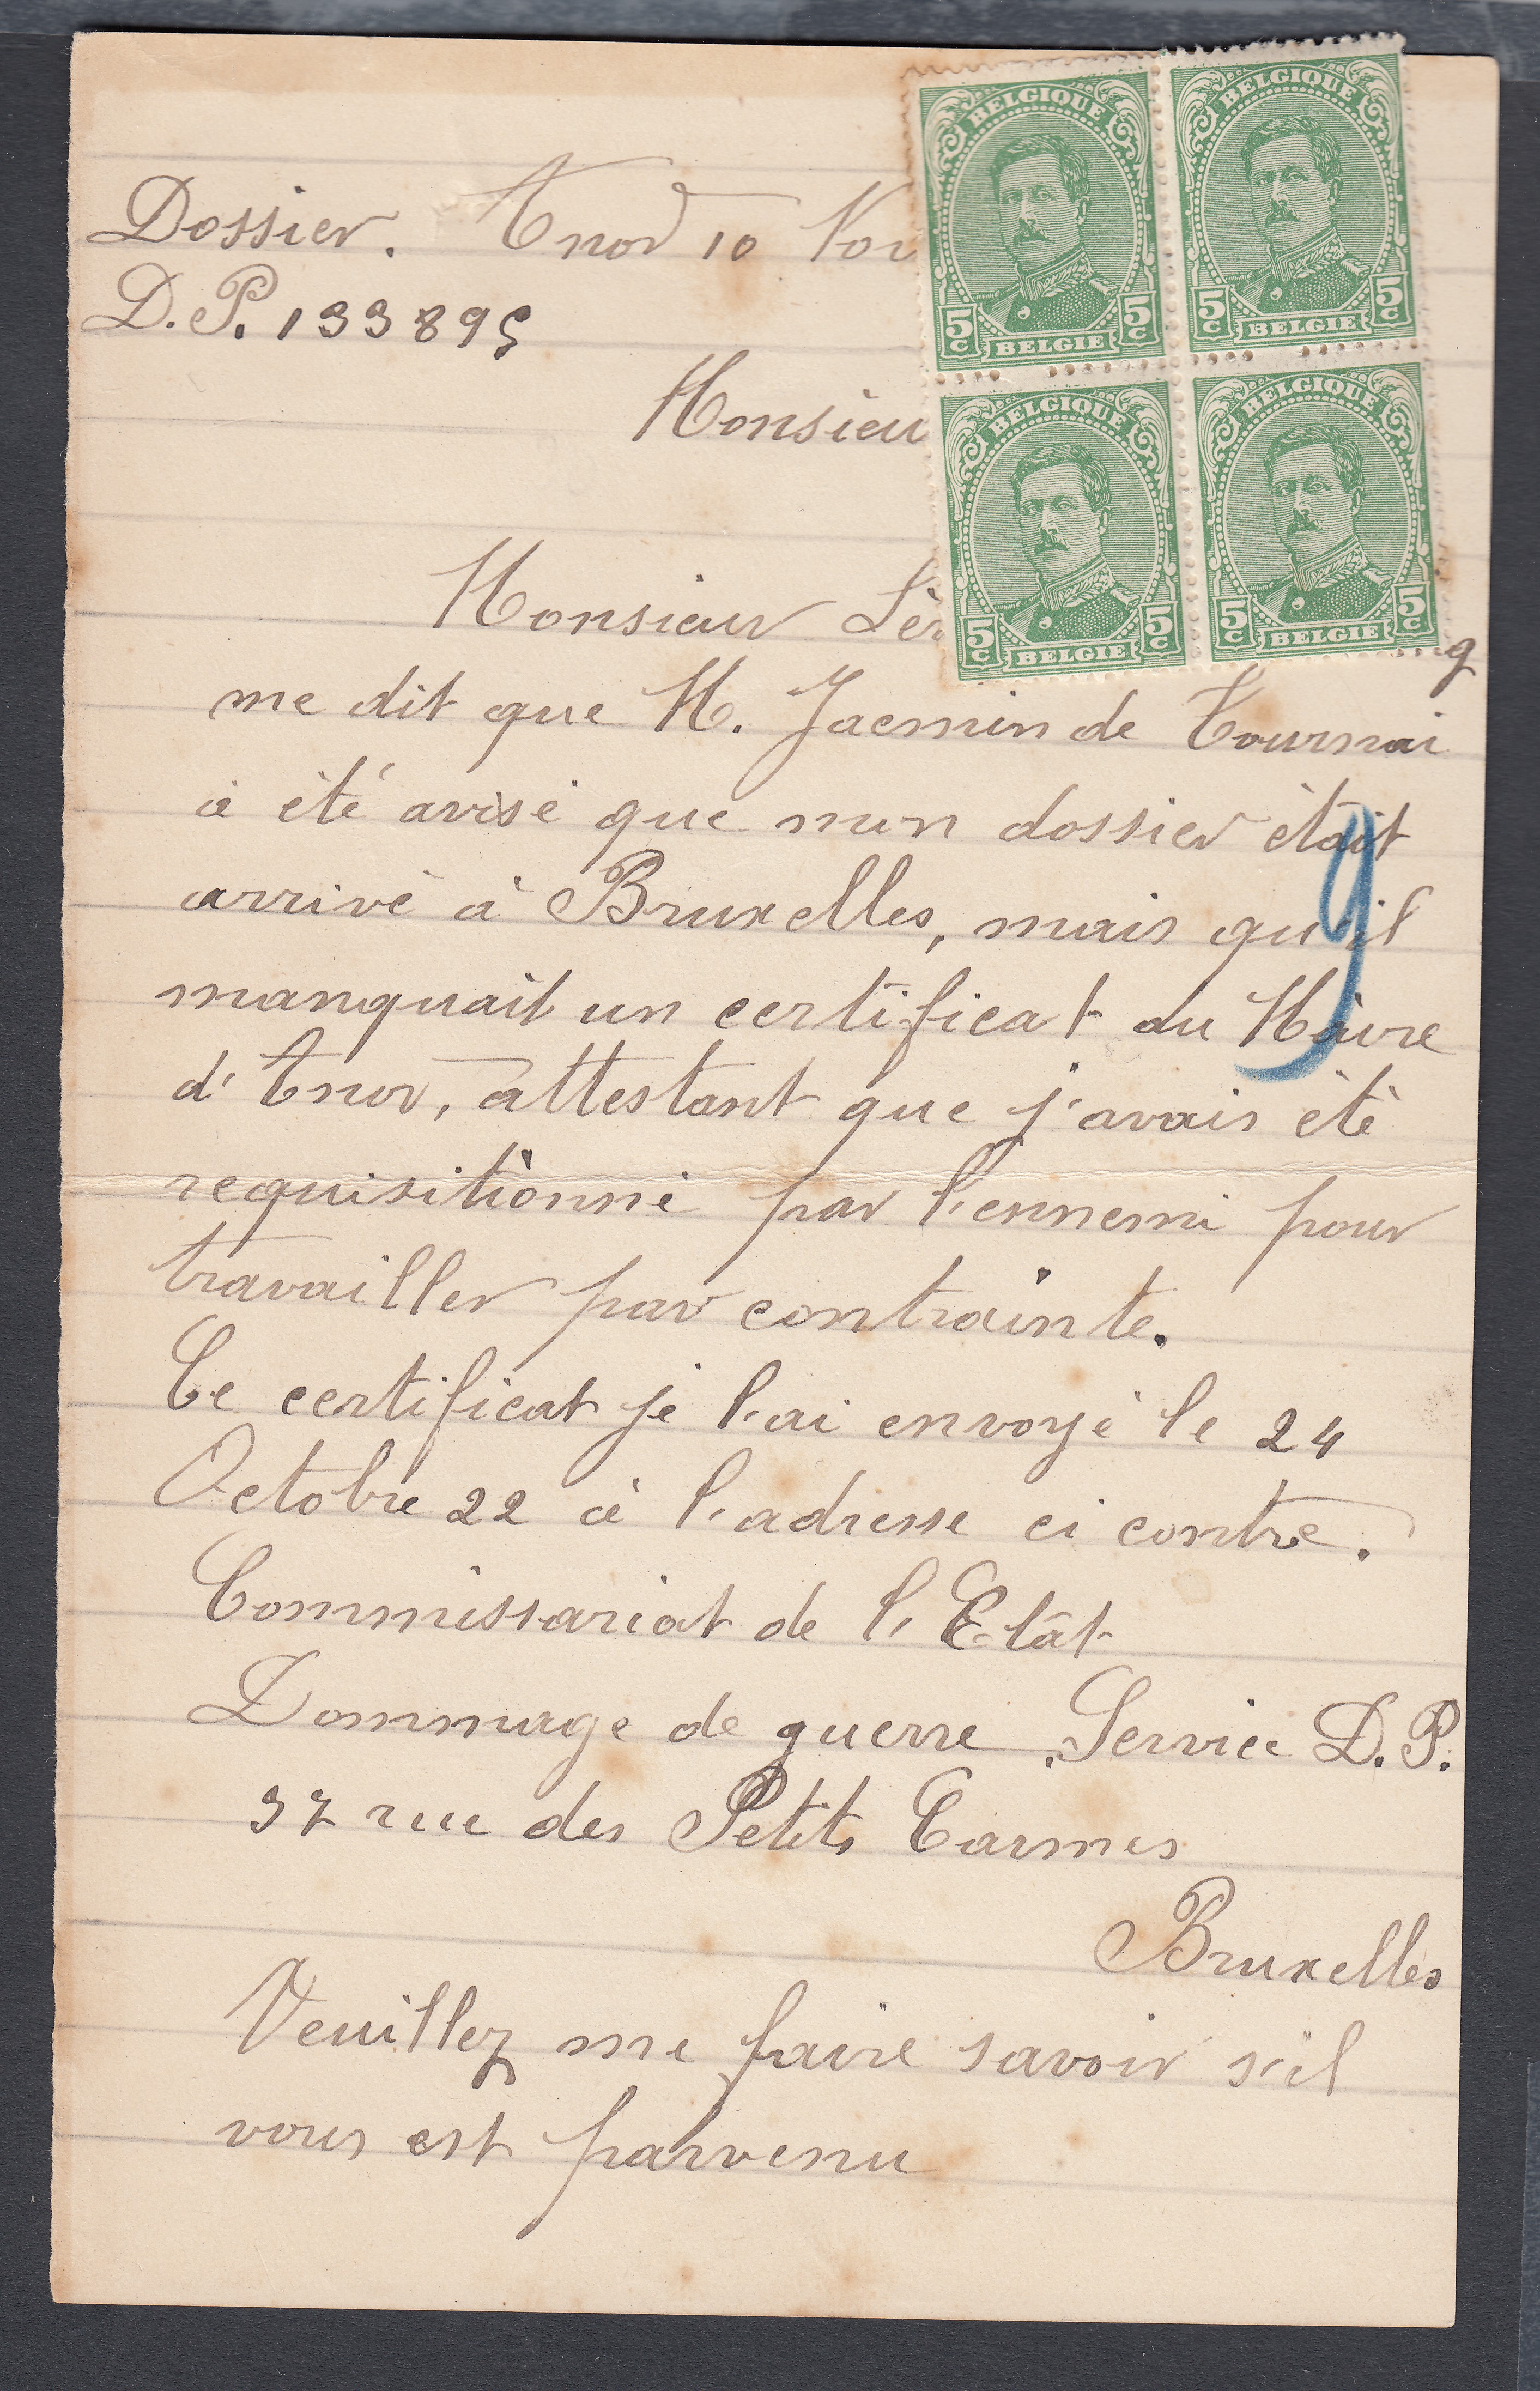 Dossier. Anor 10 Nov
D.P. 133895
Monsieu
Monsieur Lè
g
me dit que M. Jacmin de Tournai
à été avisé que mon dossier était
arrivé à Bruxelles, mais qu'il
manquait un certificat du Maire
d'Anor, attestant que j'avais été
requisitionné par l'ennemi pour
travailler par contrainte.
Ce certificat je l'ai envoyé le 24
Octobre 22 à l'adresse ci contre.
Commissariat de l'Etât
Dommage de guerre. Service D.P.
37 rue des Petits Carmes
Bruxelles
Veuillez me faire savoir s'il
vous est parvenu
9
BELGIQUE
5c BELGIE 5c
BELGIQUE
5c BELGIE 5c
BELGIQUE
5c BELGIE 5c
BELGIQUE
5c BELGIE 5c